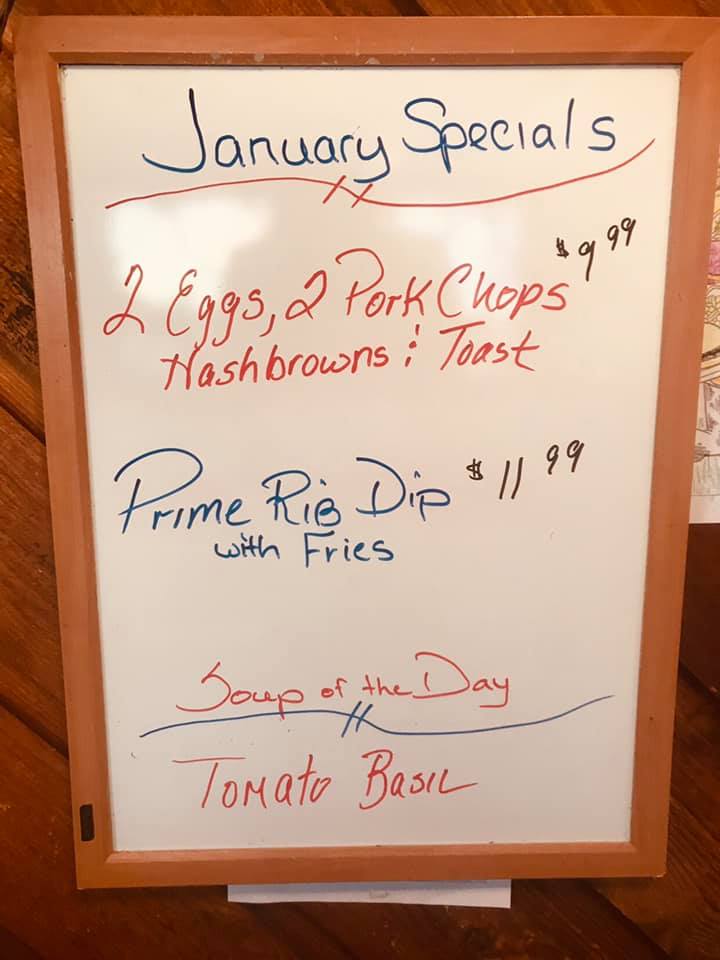 January Specials
2 Eggs, 2 Pork Chops $9 99
Hashbrowns & Toast
Prime Rib Dip $11 99
with Fries
Soup of the Day
Tomato Basil